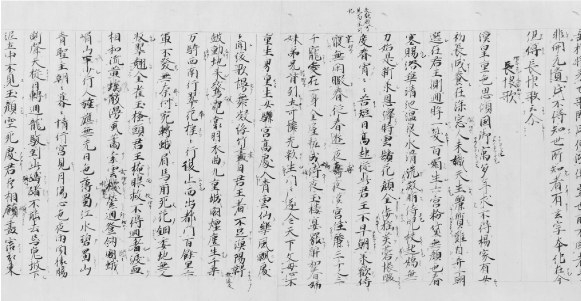 非開元遺民不得知世所知者有玄宗本紀在今
但傳長恨歌云尒
長恨歌
漢皇重色思傾國御宇多年求不得楊家有女
初長成養在深窓人未識天生麗質難自弃一朝
選在君王側迴眸一笑百媚生六宮粉黛無顏色春
寒賜浴華清池溫泉水滑洗凝脂侍兒扶起嬌無
力始是新承恩澤時雲鬢花顏金步搖芙蓉帳暖
度春宵々苦短日高起從此君王不早朝承歡侍
寢無閑暇春從春遊夜專夜後宮佳麗三千人三
千寵愛在一身金屋粧成嬌侍夜玉樓宴罷醉和春姉
妹弟兄皆列土可憐光彩生門戶遂令天下父母心不
重生男重生女驪宮高處入青雲仙樂風飄處
々聞緩歌慢舞凝絲竹盡日君王看不足漁陽鞞
鼓動地來驚破霓裳羽衣曲九重城闕煙塵生千乘
万騎西南行翠花搖々行復止西出都門百餘里六
軍不發無奈何宛轉蛾眉馬前死花鈿委地無人
收翠翹金雀玉搔頭君王掩眼救不得迴看淚血
相和流黃埃散漫風蕭索雲棧縈迴登劒閣峨
嵋山下少行人旌旗無光日色薄蜀江水碧蜀山
青聖主朝々暮々情行宮見月傷心色夜雨聞猿腸
斷聲天旋日轉迴龍馭到此躊躇不能去馬嵬坡下
泥土中不見玉顏空死處君臣相顧盡霑衣東